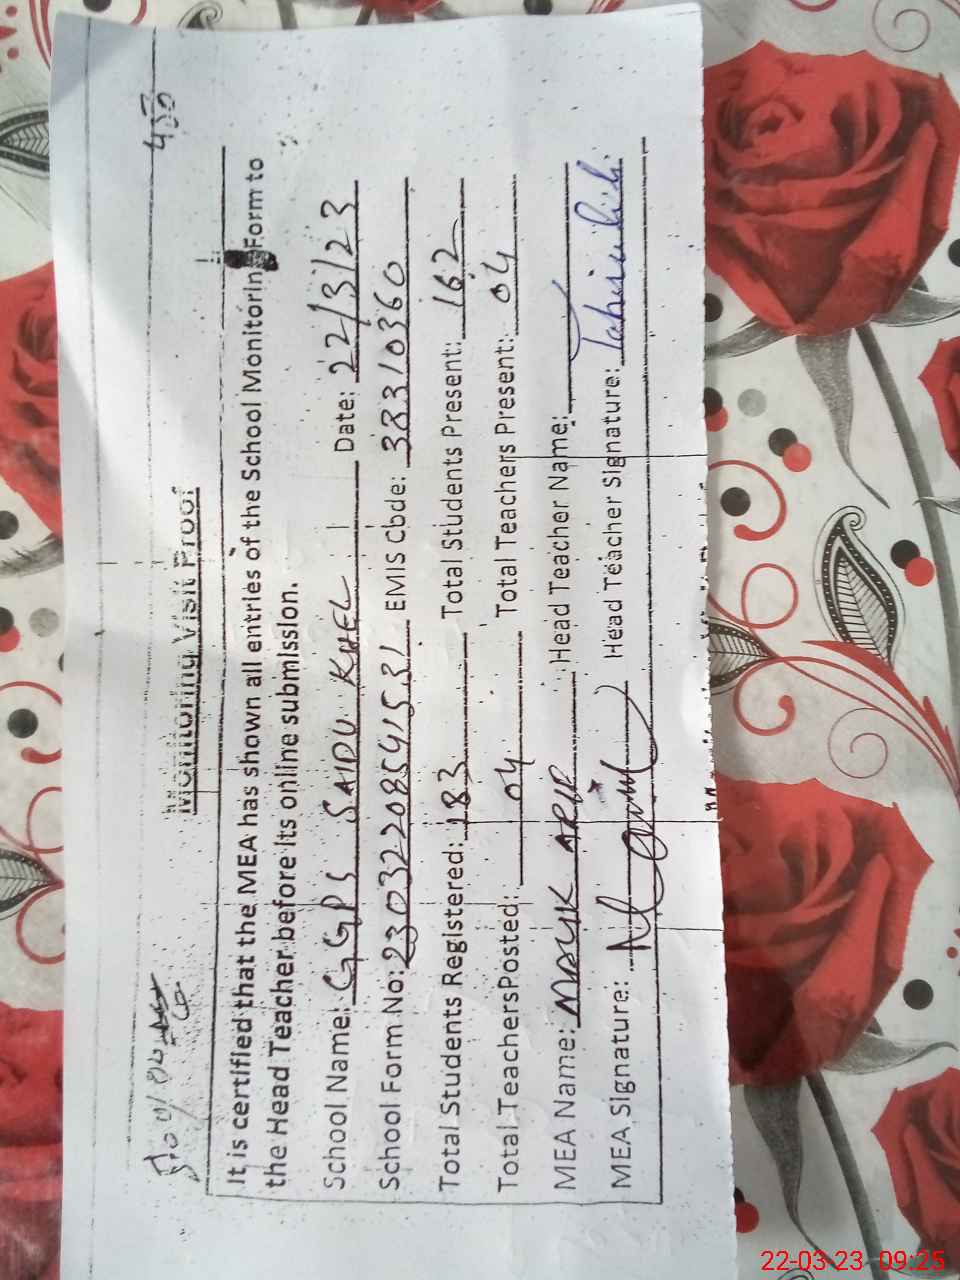 450
Monitoring Visit Proof
It is certified that the MEA has shown all entries of the School Monitorin Form to
the Head Teacher before its online submission.
School Name: GGPS SAIDU KHEL Date: 22/3/23
School Form No: 23032208541531 EMIS Code: 38310360
Total Students Registered: 183 Total Students Present: 162
Total Teachers Posted: 04 Total Teachers Present: 04
MEA Name: Head Teacher Name:
MEA Signature: Head Teacher Signature:
22-03-23 09:25